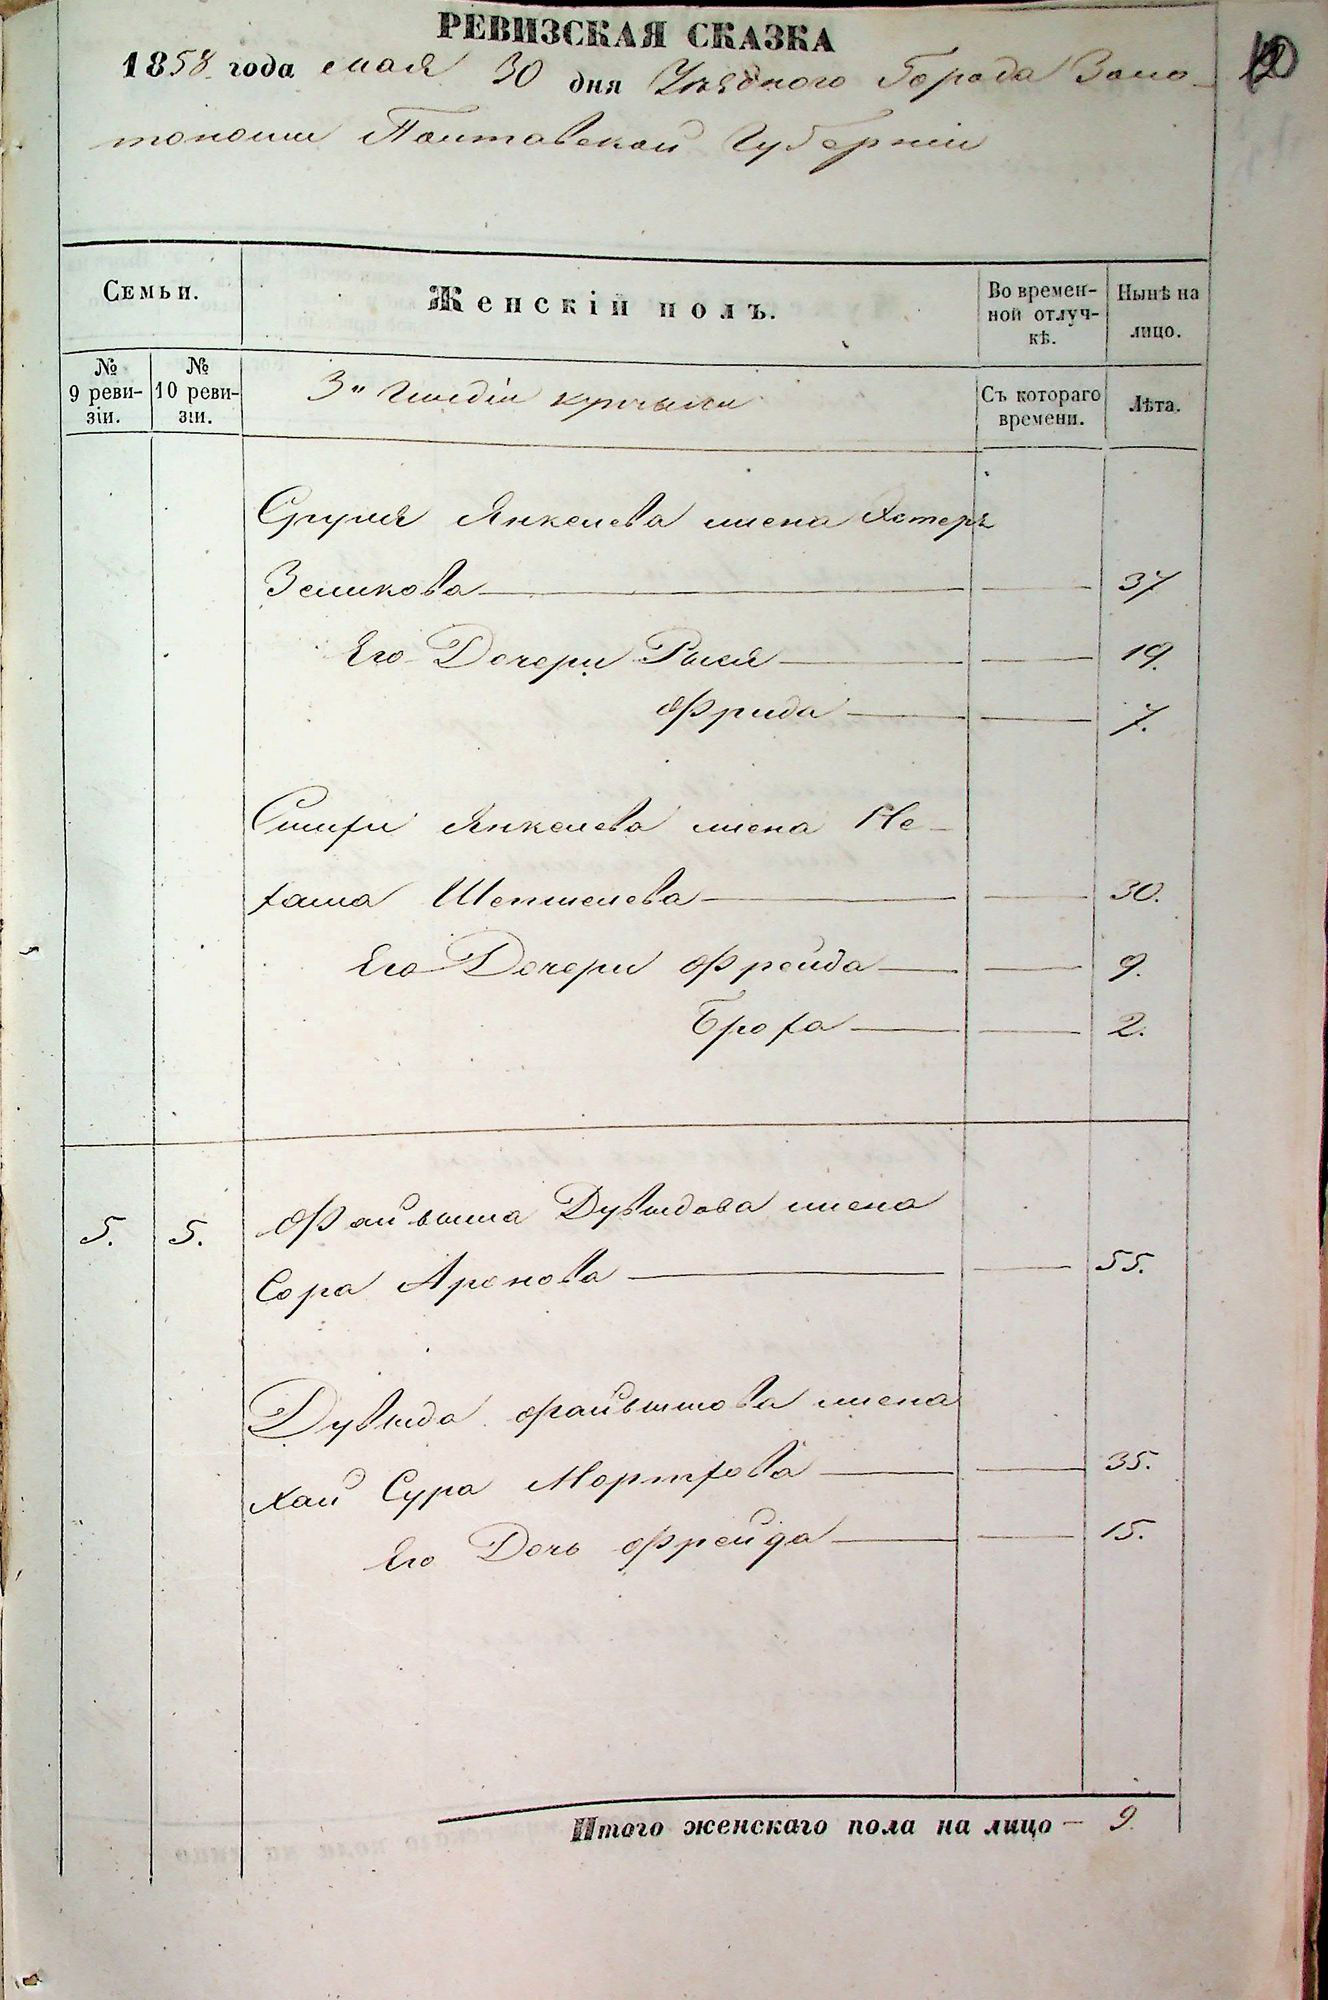 РЕВИЗСКАЯ СКАЗКА
1858 года мая 30 дня Уѣзднаго Города Золо-
тоноши Полтавской Губерніи
Семьи.
Женскій полъ.
Во времен-
ной отлуч-
кѣ.
Нынѣ на
лицо.
№
9 реви-
зіи.
№
10 реви-
зіи.
3й Гильдіи купцы
Съ котораго
времени.
Лѣта.
Сруля Янкелева жена Эстеръ
Зеликова 37
Его Дочери Рыся 19.
Фрида 7.
Янкелева жена Не-
хама Шепшелева 30.
Его Дочери Фрейда 9.
Броха 2.
5. 5. Файвиша Дувидова жена
Сора Аронова 55.
Дувида Файвишова жена
Хаи Сура Мортхова 35.
Его Дочь Фрейда 15.
Итого женскаго пола на лицо 9